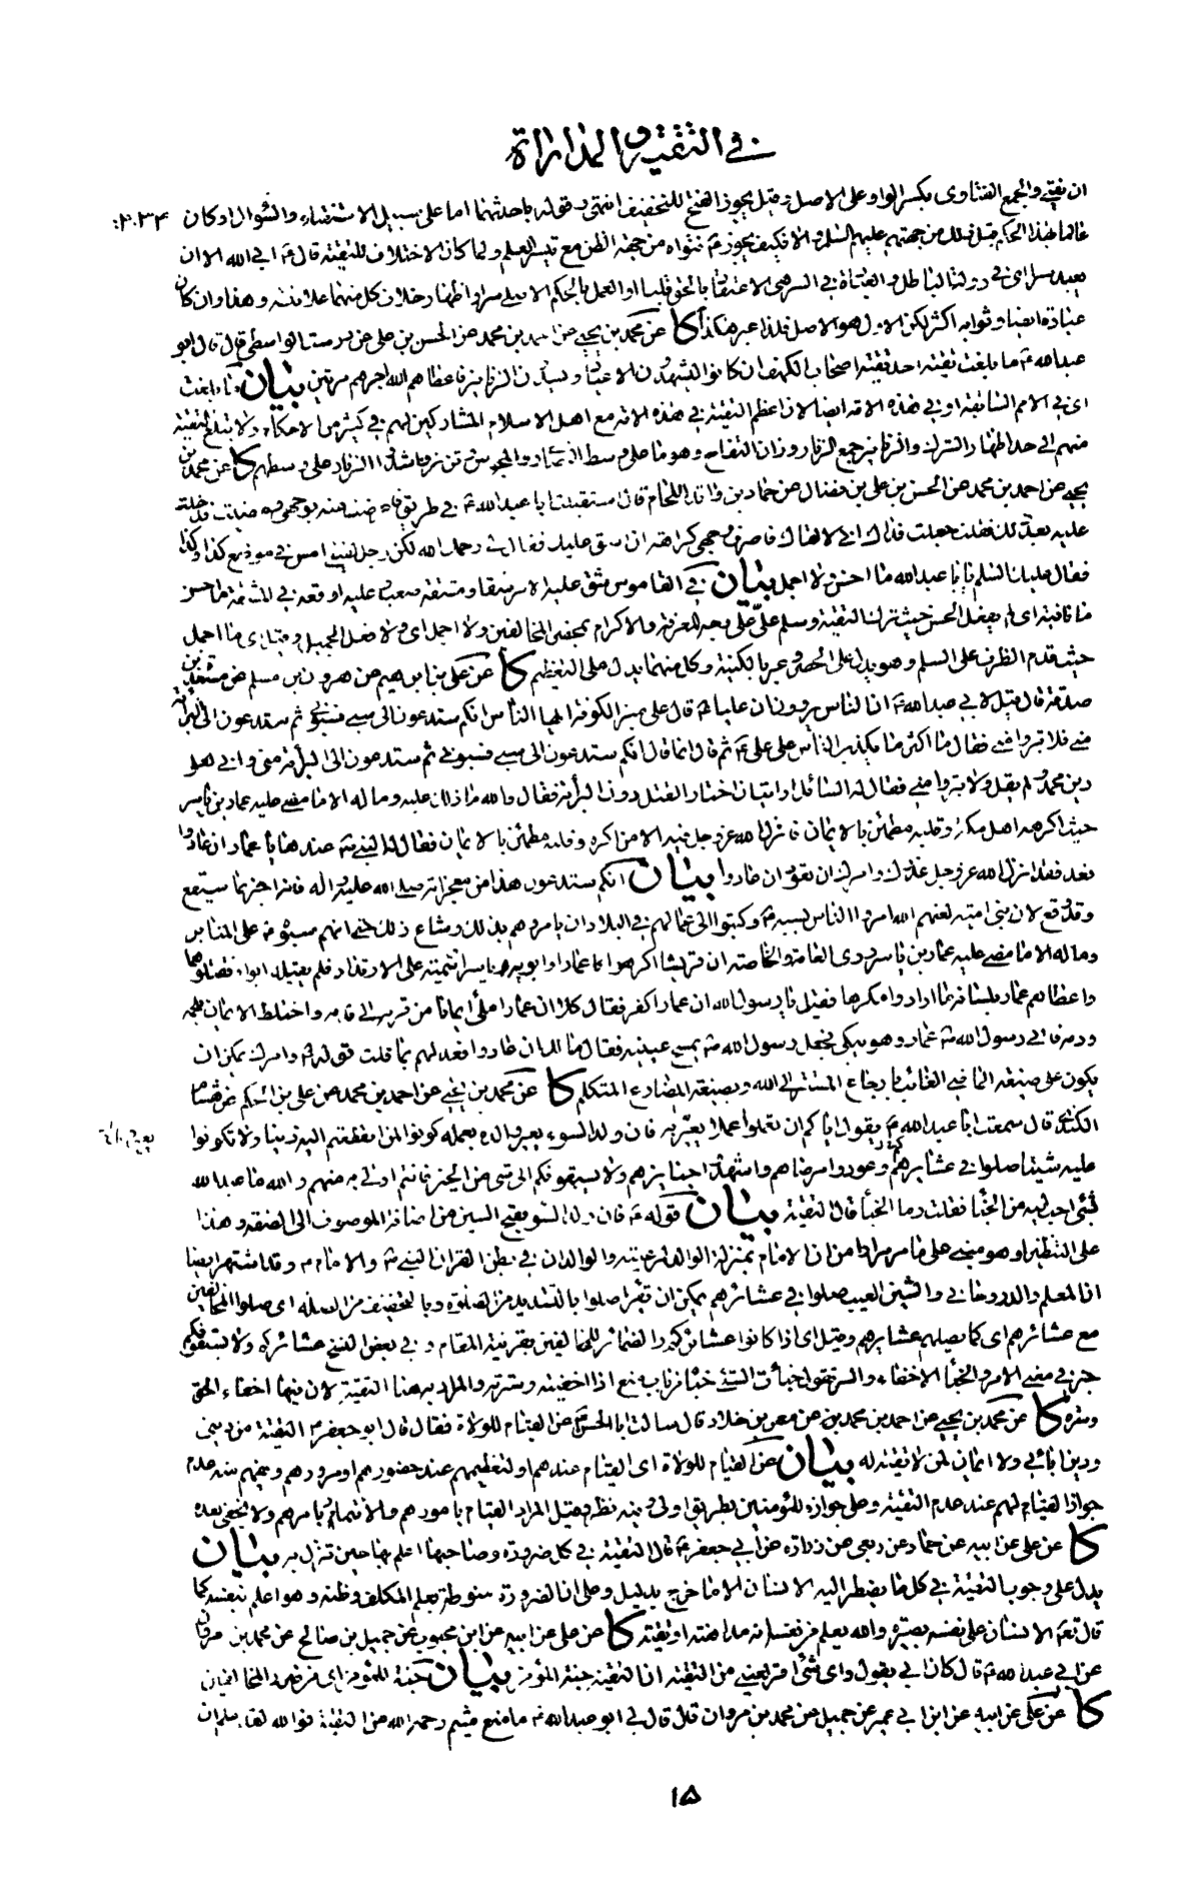 في التقية والمداراة
ان تفتى والجمع الفتاوى بكسر الواو على الاصل وقيل يجوز الفتح للتخفيف انتهى وقوله بأحدثهما اما على سبيل الاستفتاء والسؤال او كان
عالما بهذا الحكم قبل ذلك من جهتهم عليهم السلم والا فكيف يجوز فتواه من جهة الظن مع تيسر العلم ولما كان الاختلاف للتقية قال ع ابى الله الا ان
يعبد سرا اى في دولة الباطل والعبادة في السر هي الاعتقاد بالحق قلبا او العمل بالحكم الاصلى سرا واظهار خلاف كل منهما علانية وهذا وان كان
عبادة ايضا وثوابه اكثر لكن الاول هو الاصل فلذا عبر هكذا كا عن محمد بن يحيى عن احمد بن محمد عن الحسن بن على عن درست الواسطى قال قال ابو
عبد الله ع ما بلغت تقية احد تقية اصحاب الكهف ان كانوا ليشهدون الاعياد ويشدون الزنانير فاعطاهم الله اجرهم مرتين بيان ما بلغت
اى في الامم السابقة او في هذه الامة ايضا لان اعظم التقية في هذه الامة مع اهل الاسلام المشاركين لهم في كثير من الاحكام ولا تبلغ التقية
منهم الى حد اظهار الشرك والزنانير جمع الزنار وزان التفاح وهو ما على وسط النصارى والمجوس وتزنروا شدوا الزنار على وسطهم كا عن محمد بن
يحيى عن احمد بن محمد عن الحسن بن على بن فضال عن حماد بن واقد اللحام قال استقبلت ابا عبد الله ع في طريق فاعرضت عنه بوجهى ومضيت فدخلت
عليه بعد ذلك فقلت جعلت فداك انى لالقاك فاصرف وجهى كراهة ان اشق عليك فقال لى رحمك الله لكن رجل لقينى امس في موضع كذا وكذا
فقال عليك السلم يا با عبد الله ما احسن ولا اجمل بيان في القاموس شق عليه الامر شقا ومشقة صعب عليه اوقعه في المشقة ما احسن
ما نافية اى لم يفعل الحسن حيث ترك التقية وسلم على على وجه المعرفة والاكرام بمحضر المخالفين ولا اجمل اى ولا فعل الجميل وقيل اى ما اجمل
حيث قدم الظرف على السلم وهو يدل على الحصر وعبر بالكنية وكل منهما يدل على التعظيم كا عن على بن ابراهيم عن هرون بن مسلم عن مسعدة بن
صدقة قال قيل لابى عبد الله ع ان الناس يروون ان عليا ع قال على منبر الكوفة ايها الناس انكم ستدعون الى سبى فسبونى ثم ستدعون الى البراءة
منى فلا تبرؤا منى فقال ما اكثر ما يكذب الناس على على ع ثم قال انما قال انكم ستدعون الى سبى فسبونى ثم ستدعون الى البراءة منى وانى لعلى
دين محمد ولم يقل ولا تبرؤا منى فقال له السائل ارايت ان اختار القتل دون البراءة فقال والله ما ذلك عليه وما له الا ما مضى عليه عمار بن ياسر
حيث اكرهه اهل مكة وقلبه مطمئن بالايمان فانزل الله عز وجل فيه الا من اكره وقلبه مطمئن بالايمان فقال له النبى ص عندها يا عمار ان عادوا
فعد فقد انزل الله عز وجل عذرك وامرك ان تعود ان عادوا بيان انكم ستدعون هذا من معجزاته صلى الله عليه واله فانه اخبر بما سيقع
وقد وقع لان بنى امية لعنهم الله امروا الناس بسبه ع وكتبوا الى عمالهم في البلاد ان يامروهم بذلك وشاع ذلك حتى انهم سبوه ع على المنابر
وما له الا ما مضى عليه عمار بن ياسر روى العامة والخاصة ان قريشا اكرهوا عمارا وابويه ياسرا وسمية على الارتداد فلم يقبله ابواه فقتلوهما
واعطاهم عمار بلسانه ما ارادوا مكرها فقيل يا رسول الله ان عمارا كفر فقال كلا ان عمارا ملئ ايمانا من قرنه الى قدمه واختلط الايمان بلحمه
ودمه فاتى رسول الله ص عمار وهو يبكى فجعل رسول الله ص يمسح عينيه فقال ما لك ان عادوا فعد لهم بما قلت قوله ع وامرك يمكن ان
يكون على صيغة الماضى الغائب بارجاع المستتر الى الله وبصيغة المضارع المتكلم كا عن محمد بن يحيى عن احمد بن محمد عن على بن الحكم عن هشام
الكندى قال سمعت ابا عبد الله ع يقول اياكم ان تعملوا عملا يعيرونا به فان ولد السوء يعير والده بعمله كونوا لمن انقطعتم اليه زينا ولا تكونوا
عليه شينا صلوا في عشائرهم وعودوا مرضاهم واشهدوا جنائزهم ولا يسبقونكم الى شئ من الخير فانتم اولى به منهم والله ما عبد الله
بشئ احب اليه من الخبأ فقلت وما الخبأ قال التقية بيان قوله ع فان ولد السوء بفتح السين من اضافة الموصوف الى الصفة وهذا
على التنظير او هو مبنى على ما مر مرارا من ان الامام بمنزلة الوالد لرعيته والوالدان في بطن القران النبى ص والامام ع وقد اشتهر ايضا
ان المعلم والد روحانى والشين العيب صلوا في عشائرهم يمكن ان تقرأ صلوا بالتشديد من الصلوة وبالتخفيف من الصلة اى صلوا المخالفين
مع عشائرهم اى كما يصلهم عشائرهم وقيل اى اذا كانوا عشائركم والضمائر للمخالفين بقرينة المقام وفي بعض النسخ عشائركم ولا يسبقونكم
خبر في معنى الامر والخبأ الاخفاء والستر تقول خبأت الشئ خبأ من باب منع اذا اخفيته وسترته والمراد به هنا التقية لان فيها اخفاء الحق
وستره كا عن محمد بن يحيى عن احمد بن محمد عن معمر بن خلاد قال سالت ابا الحسن ع عن القيام للولاة فقال قال ابو جعفر ع التقية من دينى
ودين ابائى ولا ايمان لمن لا تقية له بيان عن القيام للولاة اى القيام عندهم او لتعظيمهم عند حضورهم او مرورهم ويفهم منه عدم
جواز القيام لهم عند عدم التقية وعلى جوازه للمؤمنين بطريق اولى وفيه نظر وقيل المراد القيام بامورهم والائتمار بامرهم ولا يخفى بعده
كا عن على عن ابيه عن حماد عن ربعى عن زرارة عن ابى جعفر ع قال التقية في كل ضرورة وصاحبها اعلم بها حين تنزل به بيان
يدل على وجوب التقية في كل ما يضطر اليه الانسان الا ما خرج بدليل وعلى ان الضرورة منوطة بعلم المكلف وظنه وهو اعلم بنفسه كما
قال تعالى بل الانسان على نفسه بصيرة والله يعلم من نفسه انه مداهنة او تقية كا عن على عن ابيه عن ابن محبوب عن جميل بن صالح عن محمد بن مروان
عن ابى عبد الله ع قال كان ابى يقول واى شئ اقر لعينى من التقية ان التقية جنة المؤمن بيان جنة للمؤمن اى من ضرر المخالفين
كا عن على عن ابيه عن ابن ابى عمير عن جميل عن محمد بن مروان قال قال لى ابو عبد الله ع ما منع ميثم رحمه الله من التقية فوالله لقد علم ان
١٥